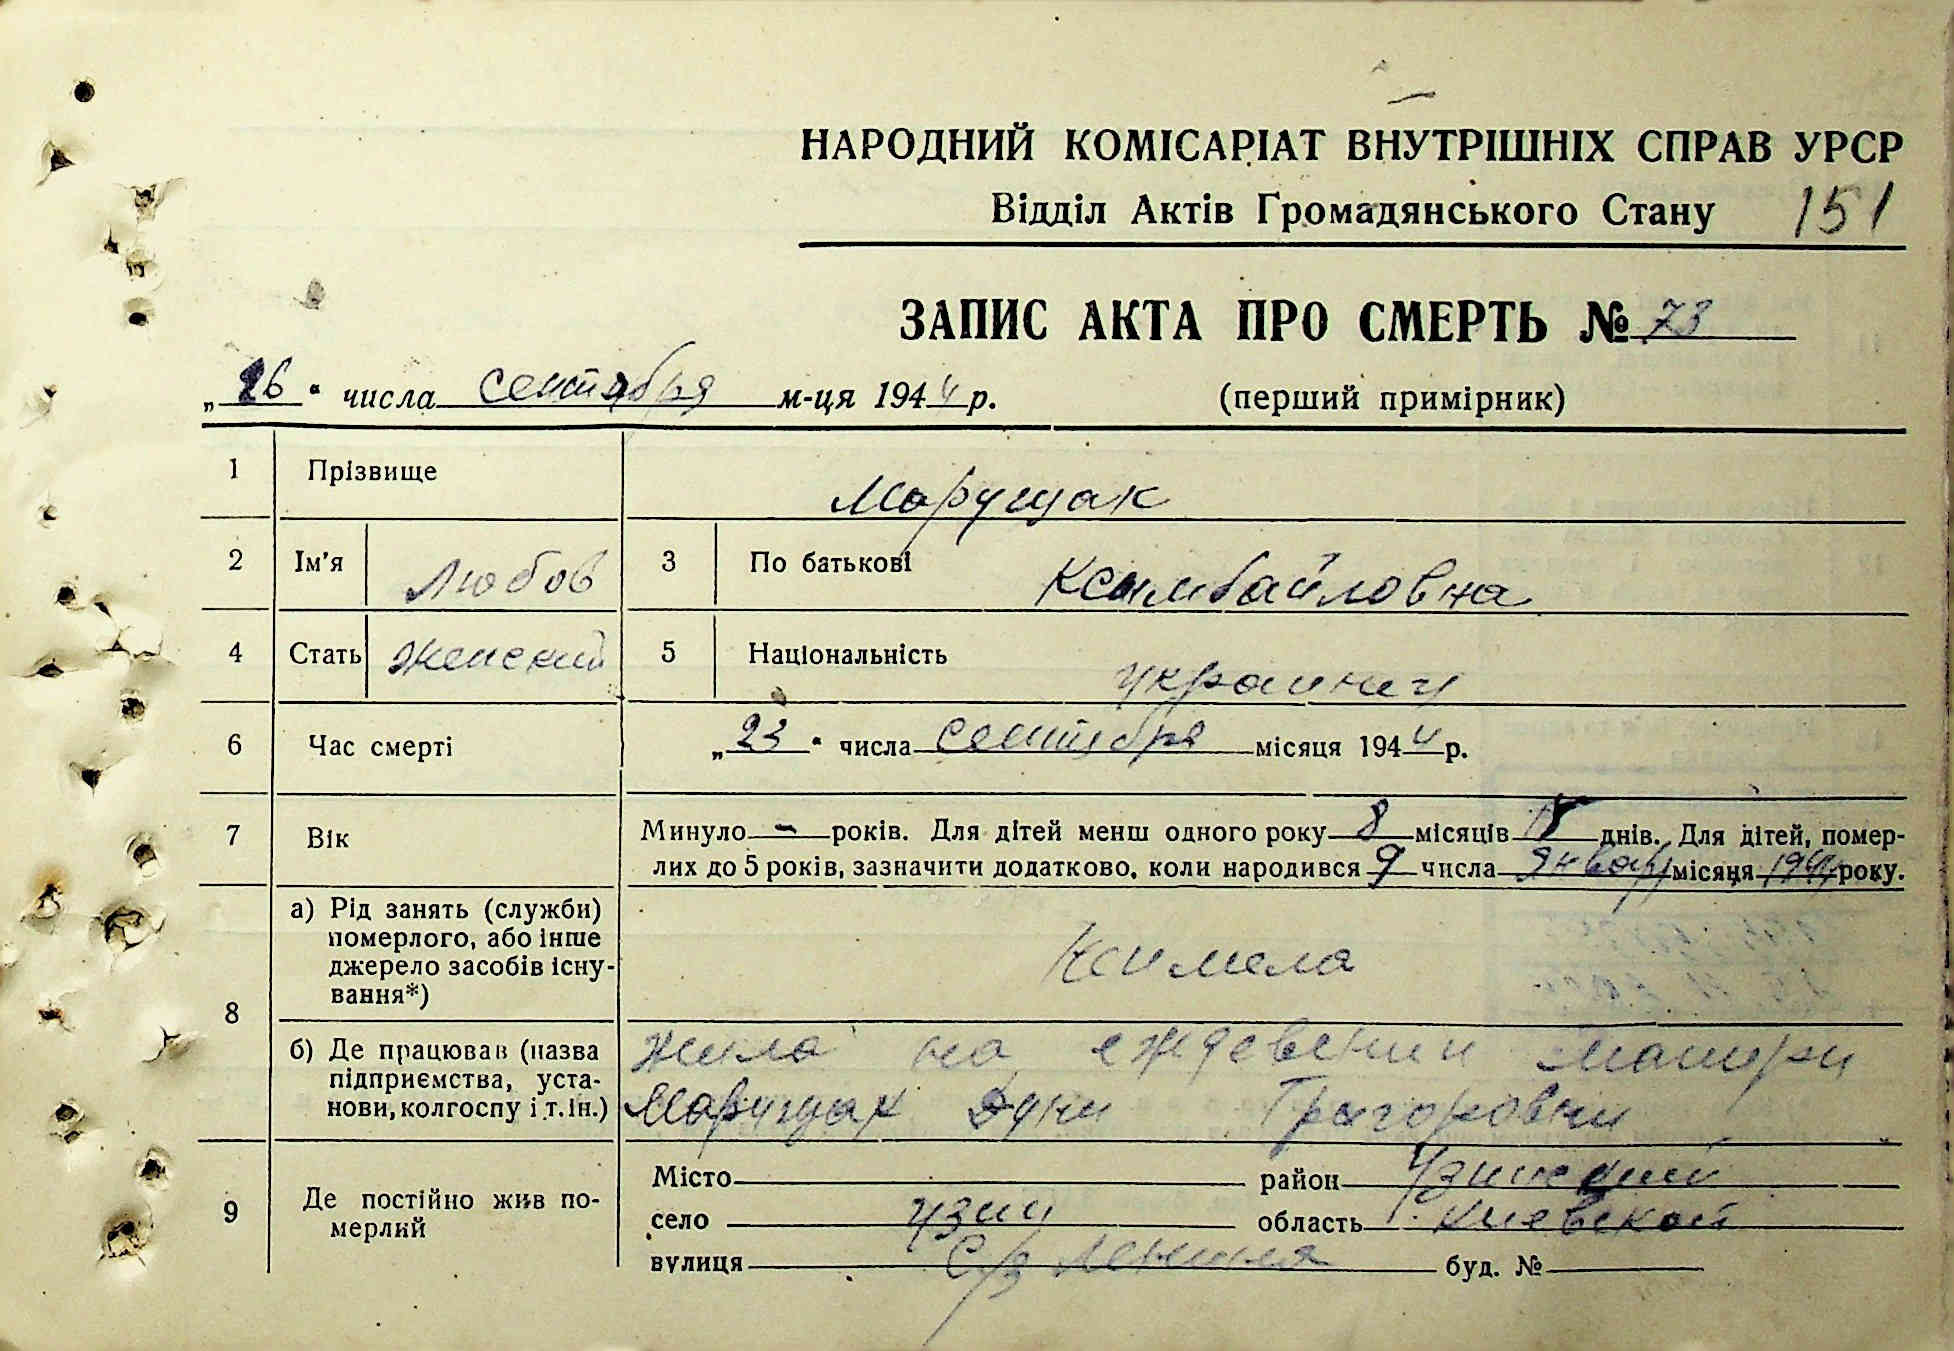 НАРОДНИЙ КОМІСАРІАТ ВНУТРІШНІХ СПРАВ УРСР
Відділ Актів Громадянського Стану 151
ЗАПИС АКТА ПРО СМЕРТЬ № 73
„26“ числа сентября м-ця 1944 р. (перший примірник)
1 Прізвище Марущак
2 Ім'я Любов 3 По батькові
4 Стать женский 5 Національність
6 Час смерті „23“ числа сентября місяця 1944 р.
7 Вік Минуло - років. Для дітей менш одного року 8 місяців днів. Для дітей, помер-
лих до 5 років, зазначити додатково, коли народився 9 числа января місяця 1944 року.
8 а) Рід занять (служби) померлого, або інше джерело засобів існу-вання*) Не имела
б) Де працював (назва підприємства, уста-нови, колгоспу і т. ін.) жила на матери
Марущак Дуни
9 Де постійно жив по-мерлий Місто район Узинский
село Узин область Киевской
вулиця С/з Ленина буд. №